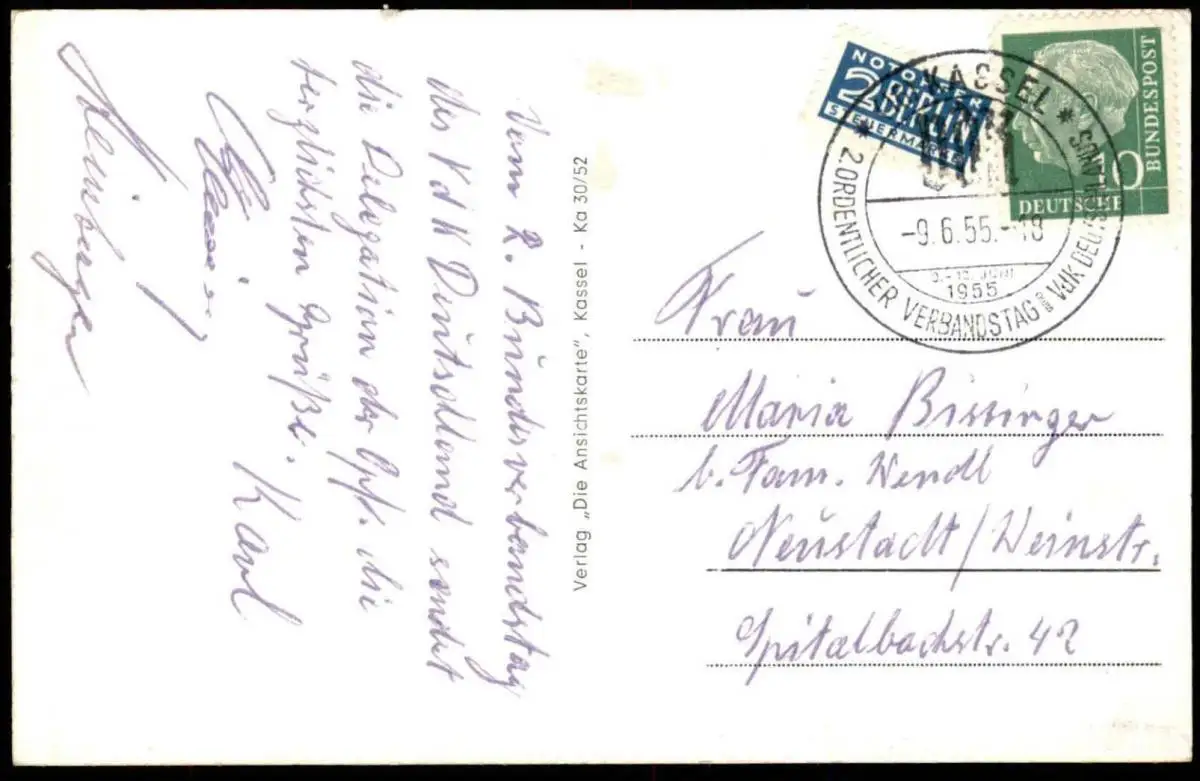 Vom 2. Bundesverbandstag
des VdK Deutschland sendet
die Delegation der Opf. die
herzlichsten Grüße. Karl
Verlag „Die Ansichtskarte", Kassel - Ka 30/52
NOTOPFER
2 BERLIN
STEUERMARKE
10
DEUTSCHE
BUNDESPOST
KASSEL
2.ORDENTLICHER VERBANDSTAG DES VdK DEUTSCHLANDS
-9.6.55.-18
9.-12. JUNI
1955
Frau
Maria Bissinger
b. Fam. Wendl
Neustadt/Weinstr.
Spitalbachstr. 42